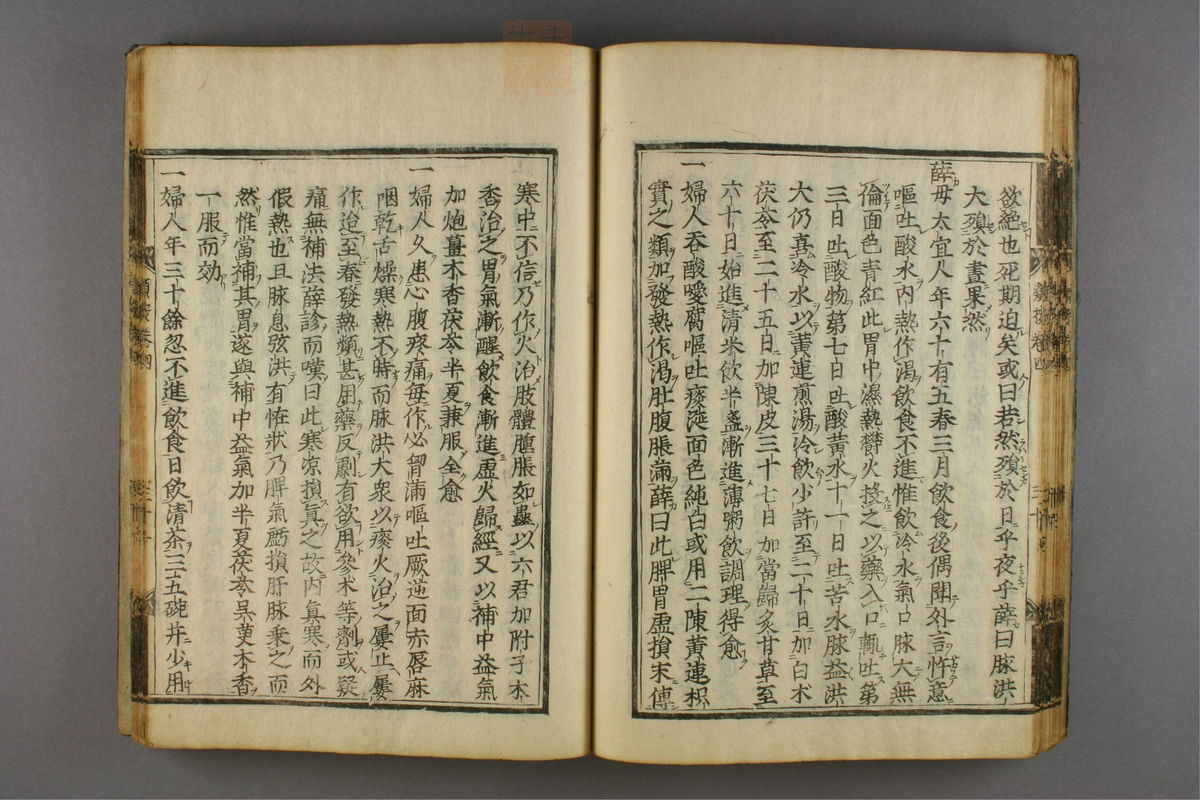 欲絶也死期迫矣或曰若然殞於日乎夜乎薛曰脉洪
大殞於晝果然
薛母太宜人年六十有五春三月飲食後偶聞外言忤意
嘔吐酸水内熱作渴飲食不進惟飲冷水氣口脉大無
倫面色青紅此胃中濕熱欝火投之以藥入口輒吐第
三日吐酸物第七日吐酸黄水十一日吐苦水脉益洪
大仍喜冷水以黄連煎湯冷飲少許至二十日加白术
茯苓至二十五日加陳皮三十七日加當歸炙甘草至
六十日始進清米飲半盞漸進薄粥飲調理得愈
一婦人吞酸噯腐嘔吐痰涎面色純白或用二陳黄連枳
實之類加發熱作渴肚腹脹滿薛曰此脾胃虚損末傳
寒中不信乃作火治肢體腫脹如蠱以六君加附子木
香治之胃氣漸醒飲食漸進虚火歸經又以補中益氣
加炮薑木香茯苓半夏兼服全愈
一婦人久患心腹疼痛每作必胷滿嘔吐厥逆面赤唇麻
咽乾舌燥寒熱不時而脉洪大衆以痰火治之屢止屢
作迨至春發熱頻甚用藥反劇有欲用參术等劑或疑
痛無補法薛診而嘆曰此寒凉損真之故内真寒而外
假熱也且脉息弦洪有恠狀乃脾氣虧損肝脉乗之而
然惟當補其胃遂與補中益氣加半夏茯苓吳茰木香
一服而効
一婦人年三十餘忽不進飲食日飲清茶三五碗并少用